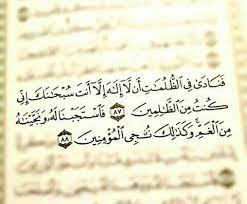 فَنَادَىٰ فِي ٱلظُّلُمَٰتِ أَن لَّآ إِلَٰهَ إِلَّآ أَنتَ سُبْحَٰنَكَ إِنِّي
كُنتُ مِنَ ٱلظَّٰلِمِينَ ٨٧ فَٱسْتَجَبْنَا لَهُۥ وَنَجَّيْنَٰهُ
مِنَ ٱلْغَمِّ ۚ وَكَذَٰلِكَ نُۨجِي ٱلْمُؤْمِنِينَ ٨٨